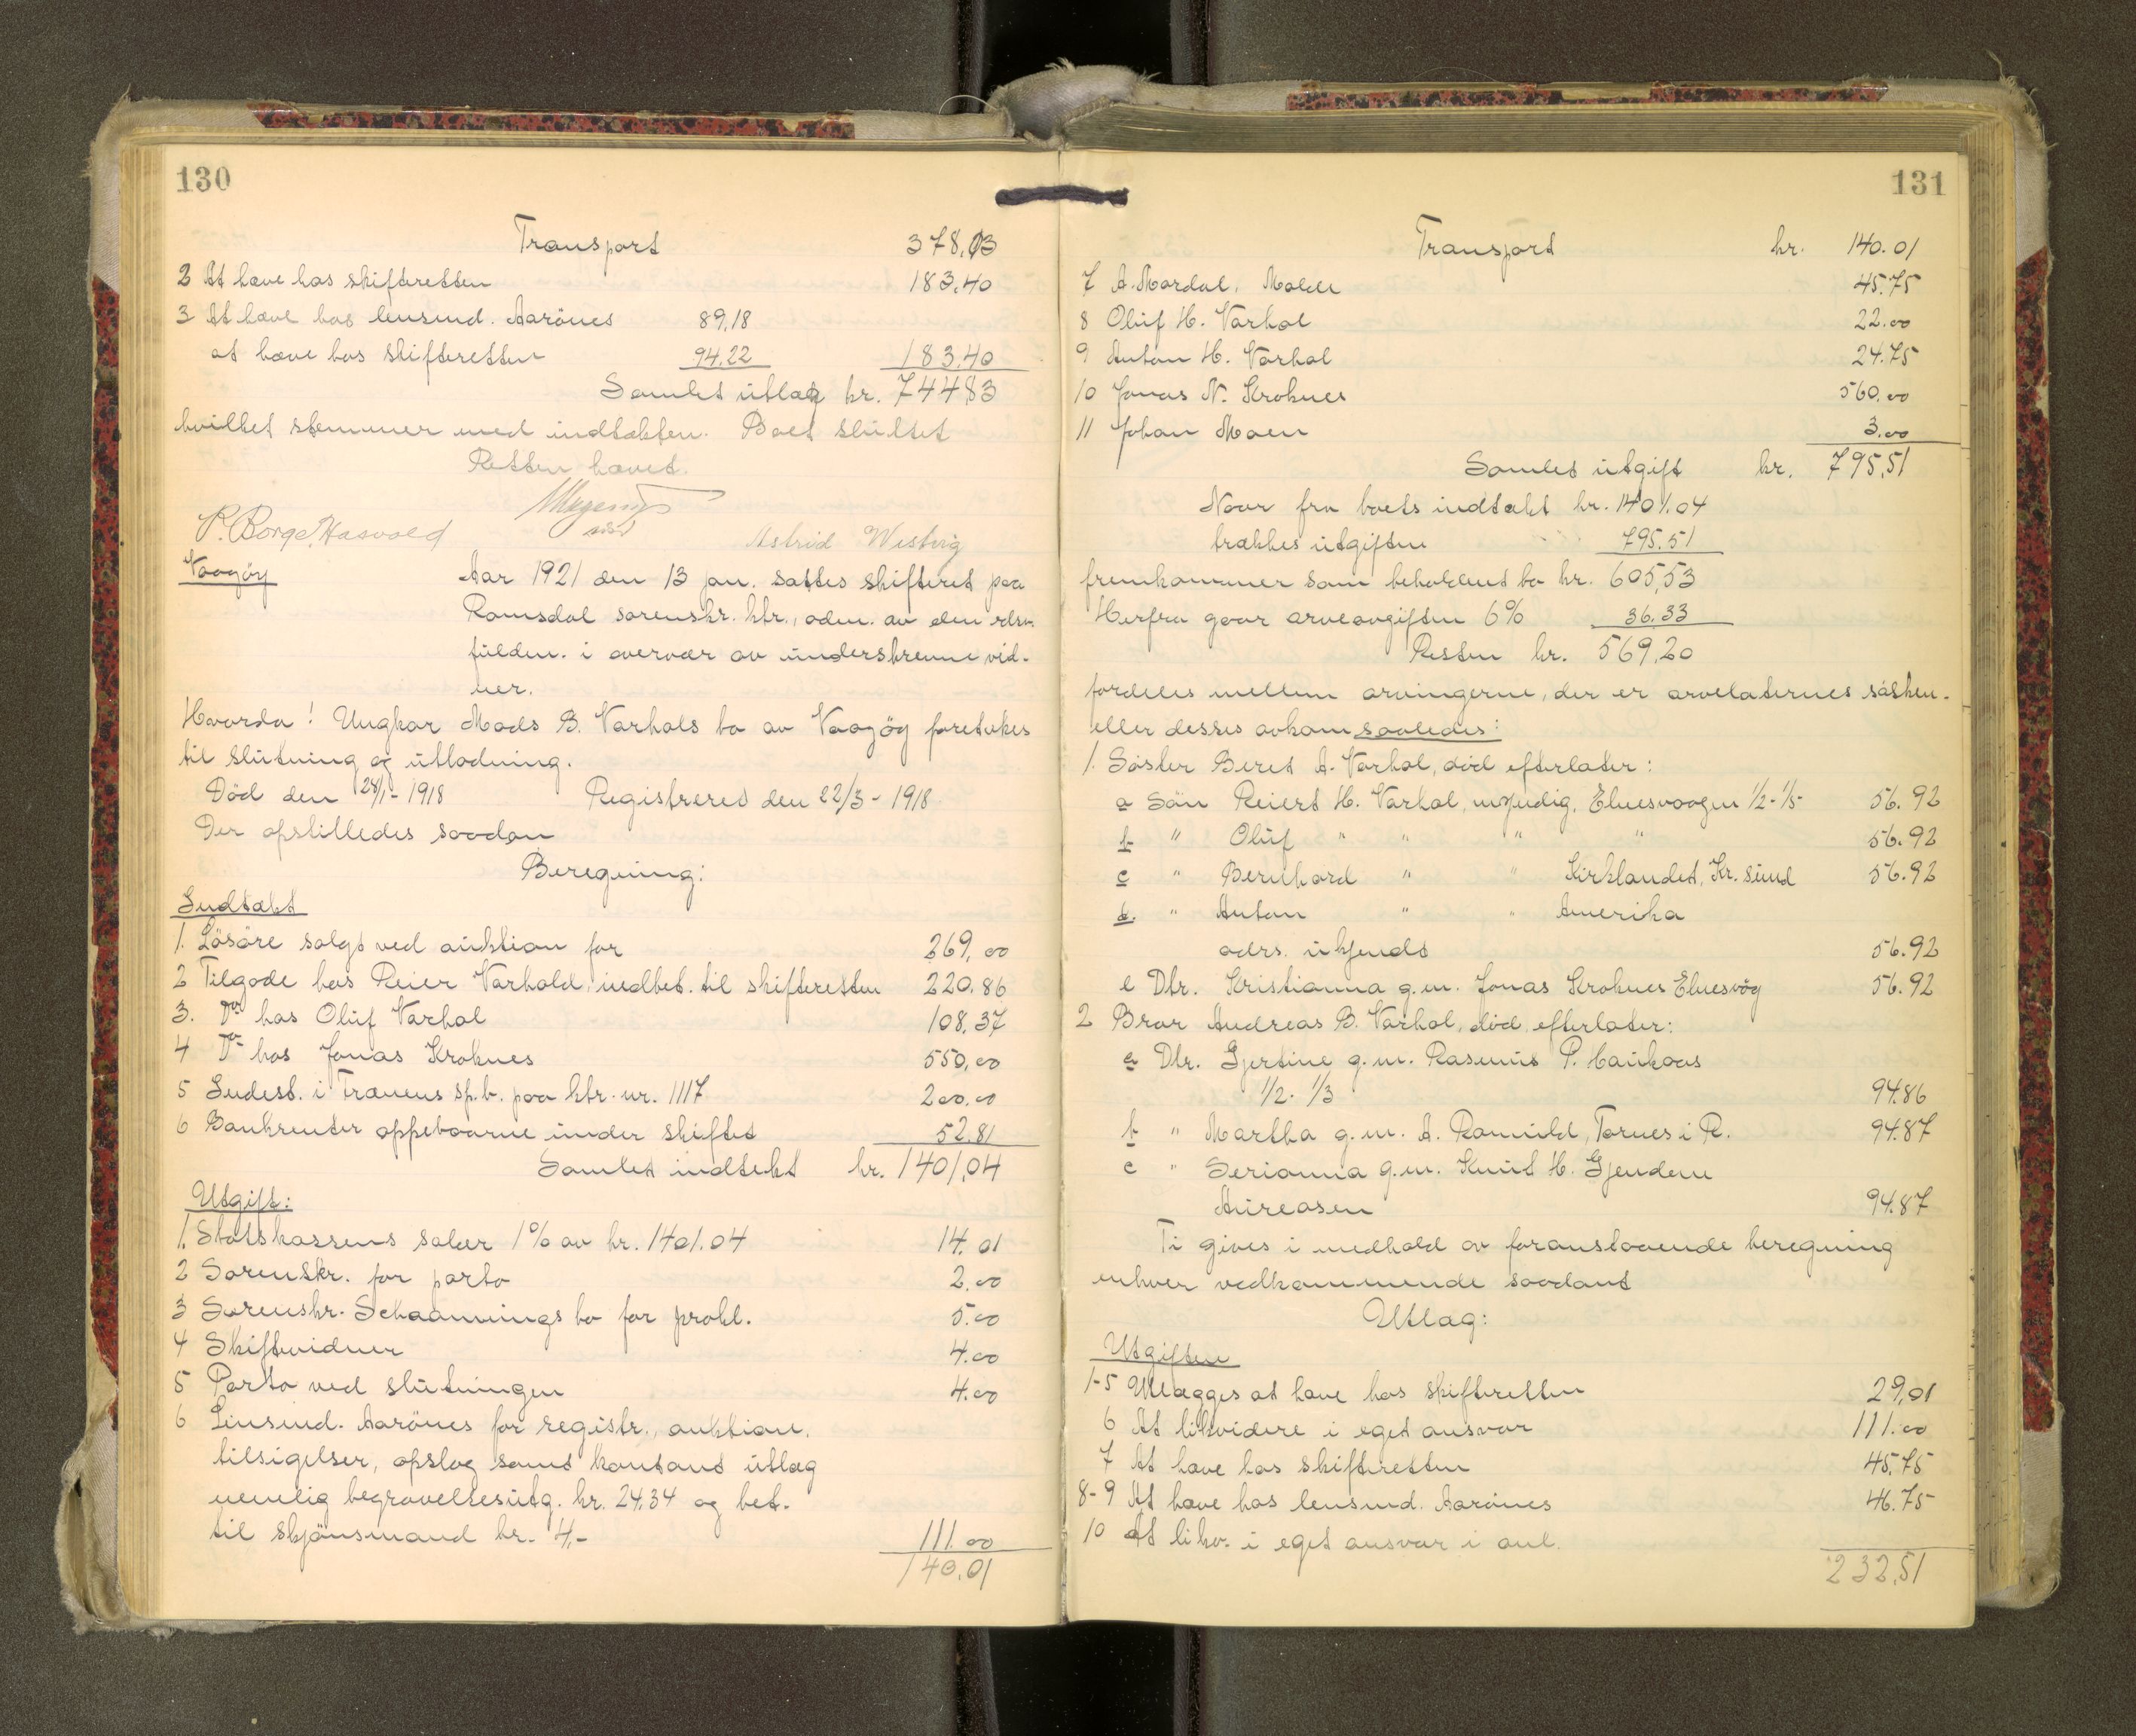 130
Transport 378,03
2 At have hos skifteretten 183,40
3 At have hos lensmd. Aarönes 89,18
at have hos skifteretten 94.22 183,40
Samlet utlæg kr. 744,83
hvilket stemmer med indtækten. Boet sluttet
Retten hævet.
P. Borge Hasvold Astrid Westvig
Vaagöy Aar 1921 den 13 jan. sattes skifteret paa
Romsdal sorenskr. ktr., adm. av den
fuldm. i overvær av underskrevne vid-
ner.
Hvorda! Ungkar Mads B. Varhols bo av Vaagöy foretukes
til slutning og utlodning.
Död den 28/1 - 1918 Registreret den 22/3 - 1918
Der opstilledes saadan
Beregning:
Indtækt
1. Lösöre solgt ved auktion for 269,00
2 Tilgode hos Reier Varhold, indbet. til skifteretten 220.86
3. Do hos Oluf Varhol 108,37
4 Do hos Jonas Kroknes 550,00
5 Indest. i Frænens sp.b. paa ktr. nr. 1117 200.00
6 Bankrenter oppebaarne under skiftet 52.81
Samlet indtekt kr. 1401,04
Utgift:
1. Statskassens salær 1% av kr. 1401.04 14.01
2 Sorenskr. for porto 2.00
3 Sorenskr. Schaannings bo for prokl. 5.00
4 Skiftevidner 4.00
5 Porto ved slutningen 4.00
6 Lensmd. Aarönes for registr., auktion,
tilsigelser, opslag samt kontant utlæg
nemlig begravelsesutg. kr. 24.34 og bet.
til skjönsmand kr. 4,- 111.00
140,01
131
Transport kr. 140.01
7 A. Mordal, Molde 45.75
8 Oluf H. Varhol 22.00
9 Anton H. Varhol 24.75
10 Jonas N. Kroknes 560.00
11 Johan Moen 3.00
Samlet utgift kr. 795,51
Naar fra boets indtækt kr. 1401.04
trækkes utgiften 795.51
fremkommer som beholdent bo kr. 605,53
Herfra gaar arveavgiften 6% 36.33
Resten kr. 569,20
fordeles mellem arvingerne, der er arvelaternes sösken-
eller desses avkom saaledes:
1. Söster Beret A. Varhol, död efterlater:
a Sön Reiert H. Varhol, myndig, Elnesvaagen 1/2 - 1/5 56.92
b " Oluf " " " " 56.92
c " Bernhard " " Kirklandet, Kr. sund 56.92
d. " Anton " " Amerika
adrs. ukjendt 56.92
e Dtr. Kristianna g.m. Jonas Kroknes Elnesvög 56.92
2 Bror Andreas B. Varhol, död, efterlater:
a Dtr. Gjertine g.m. Rasmus P. Haukaas
1/2 - 1/3 94.86
b " Martha g.m. A. Romuld, Tornes i R. 94.87
c " Serianna g.m. Knut H. Gjendem
Aureosen 94.87
Ti gives i medhold av foranstaaende beregning
enhver vedkommende saadant
Utlæg:
Utgiften
1-5 Utlægges at have hos skifteretten 29,01
6 At likvidere i eget ansvar 111.00
7 At have hos skifteretten 45.75
8-9 At have hos lensmd. Aarönes 46.75
10 At likv. i eget ansvar i anl.
232,51